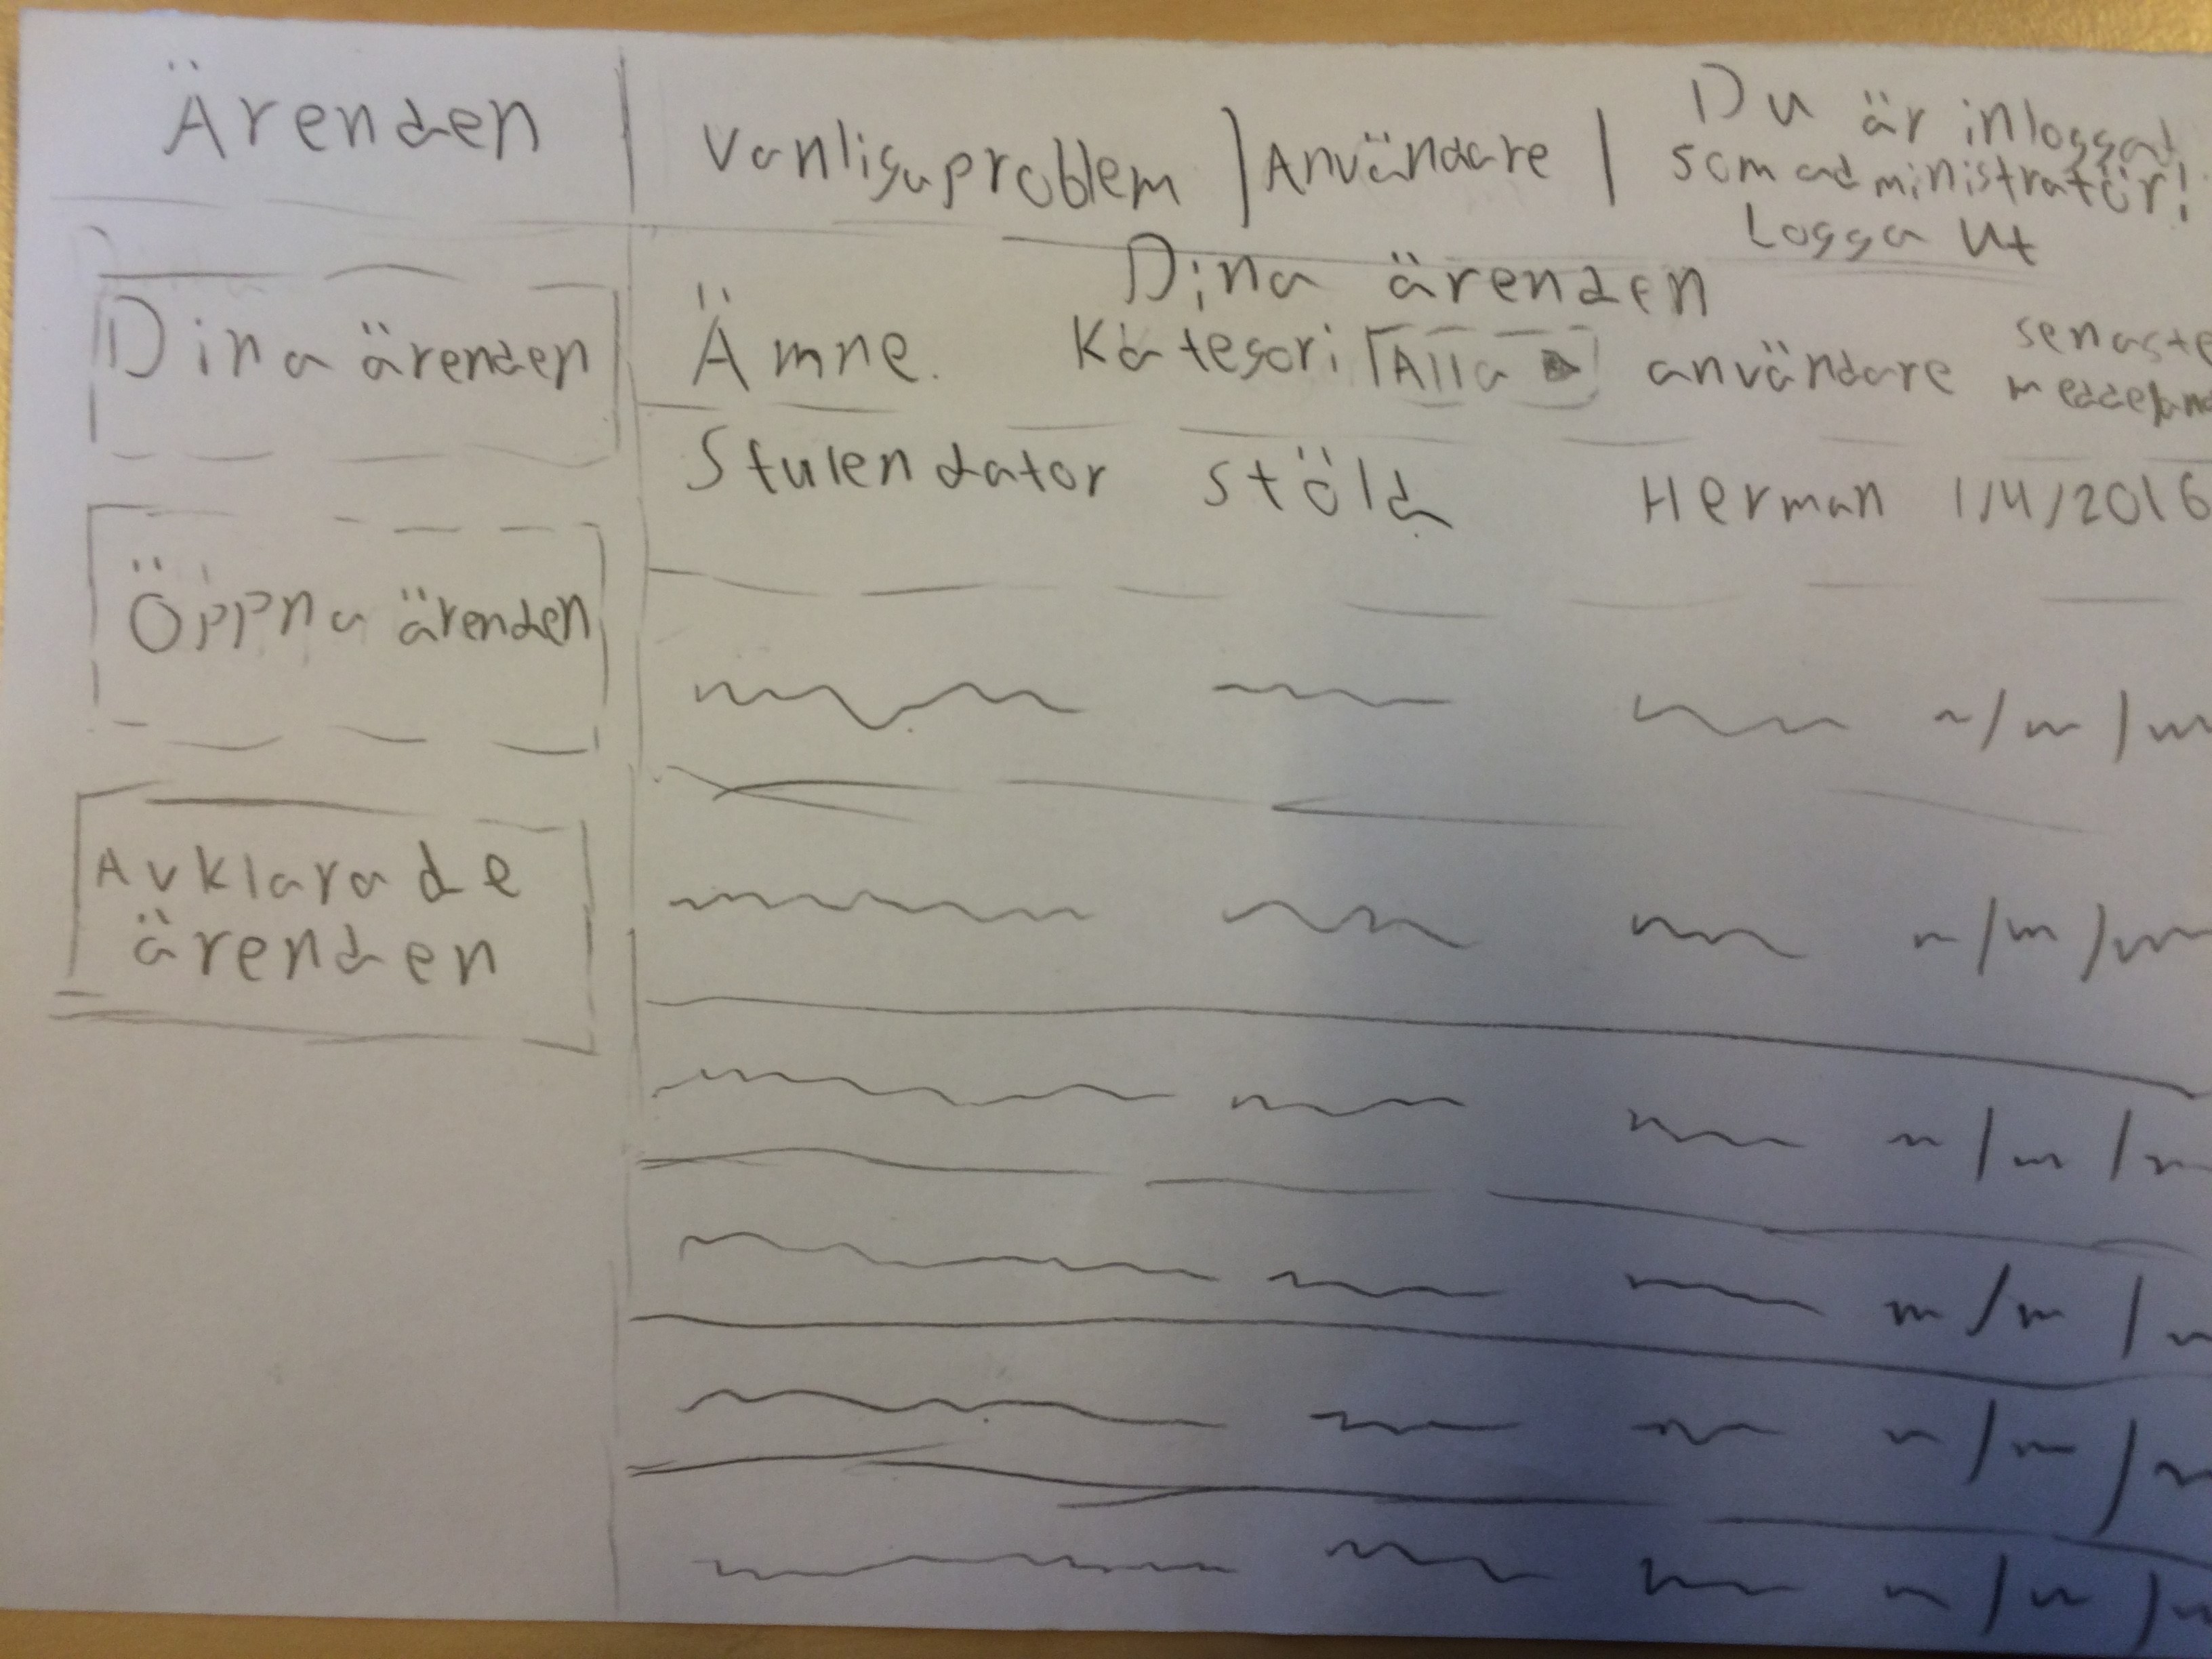 Ärenden
Vanligaproblem
Användare
Du är inloggad
som administratör!
Logga ut
Dina ärenden
Öppna ärenden
Avklarade
ärenden
Dina ärenden
Ämne. Kategori Alla användare senaste
Stulen dator stöld Herman 1/4/2016